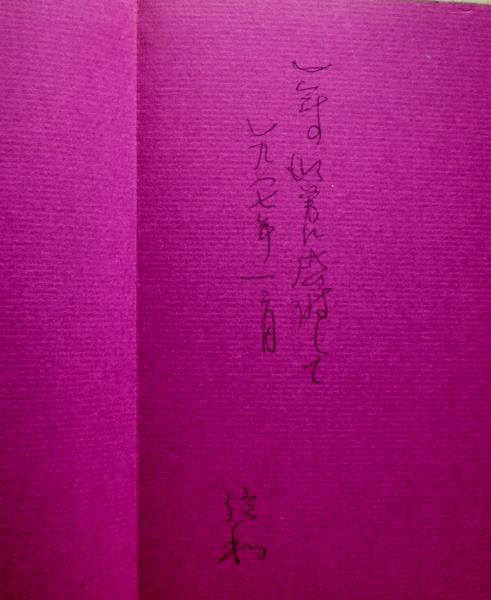 一年の御に感謝して
一九八七年一二月
信和